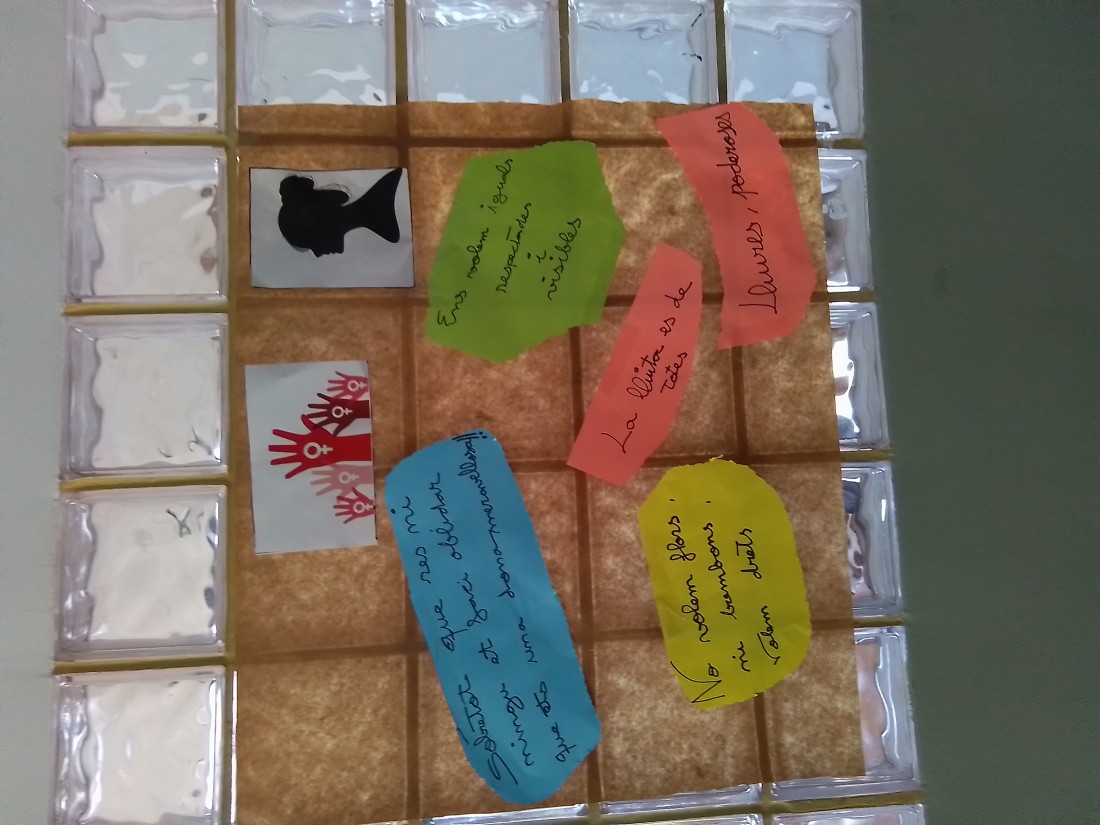 Sobretot que res ni
ningú et faci oblidar
que ets una dona meravellosa!!
Ens volem iguals
respectades
i
visibles
La lluita es de
totes
No volem flors,
ni bombons,
volem drets
Lliures, poderoses